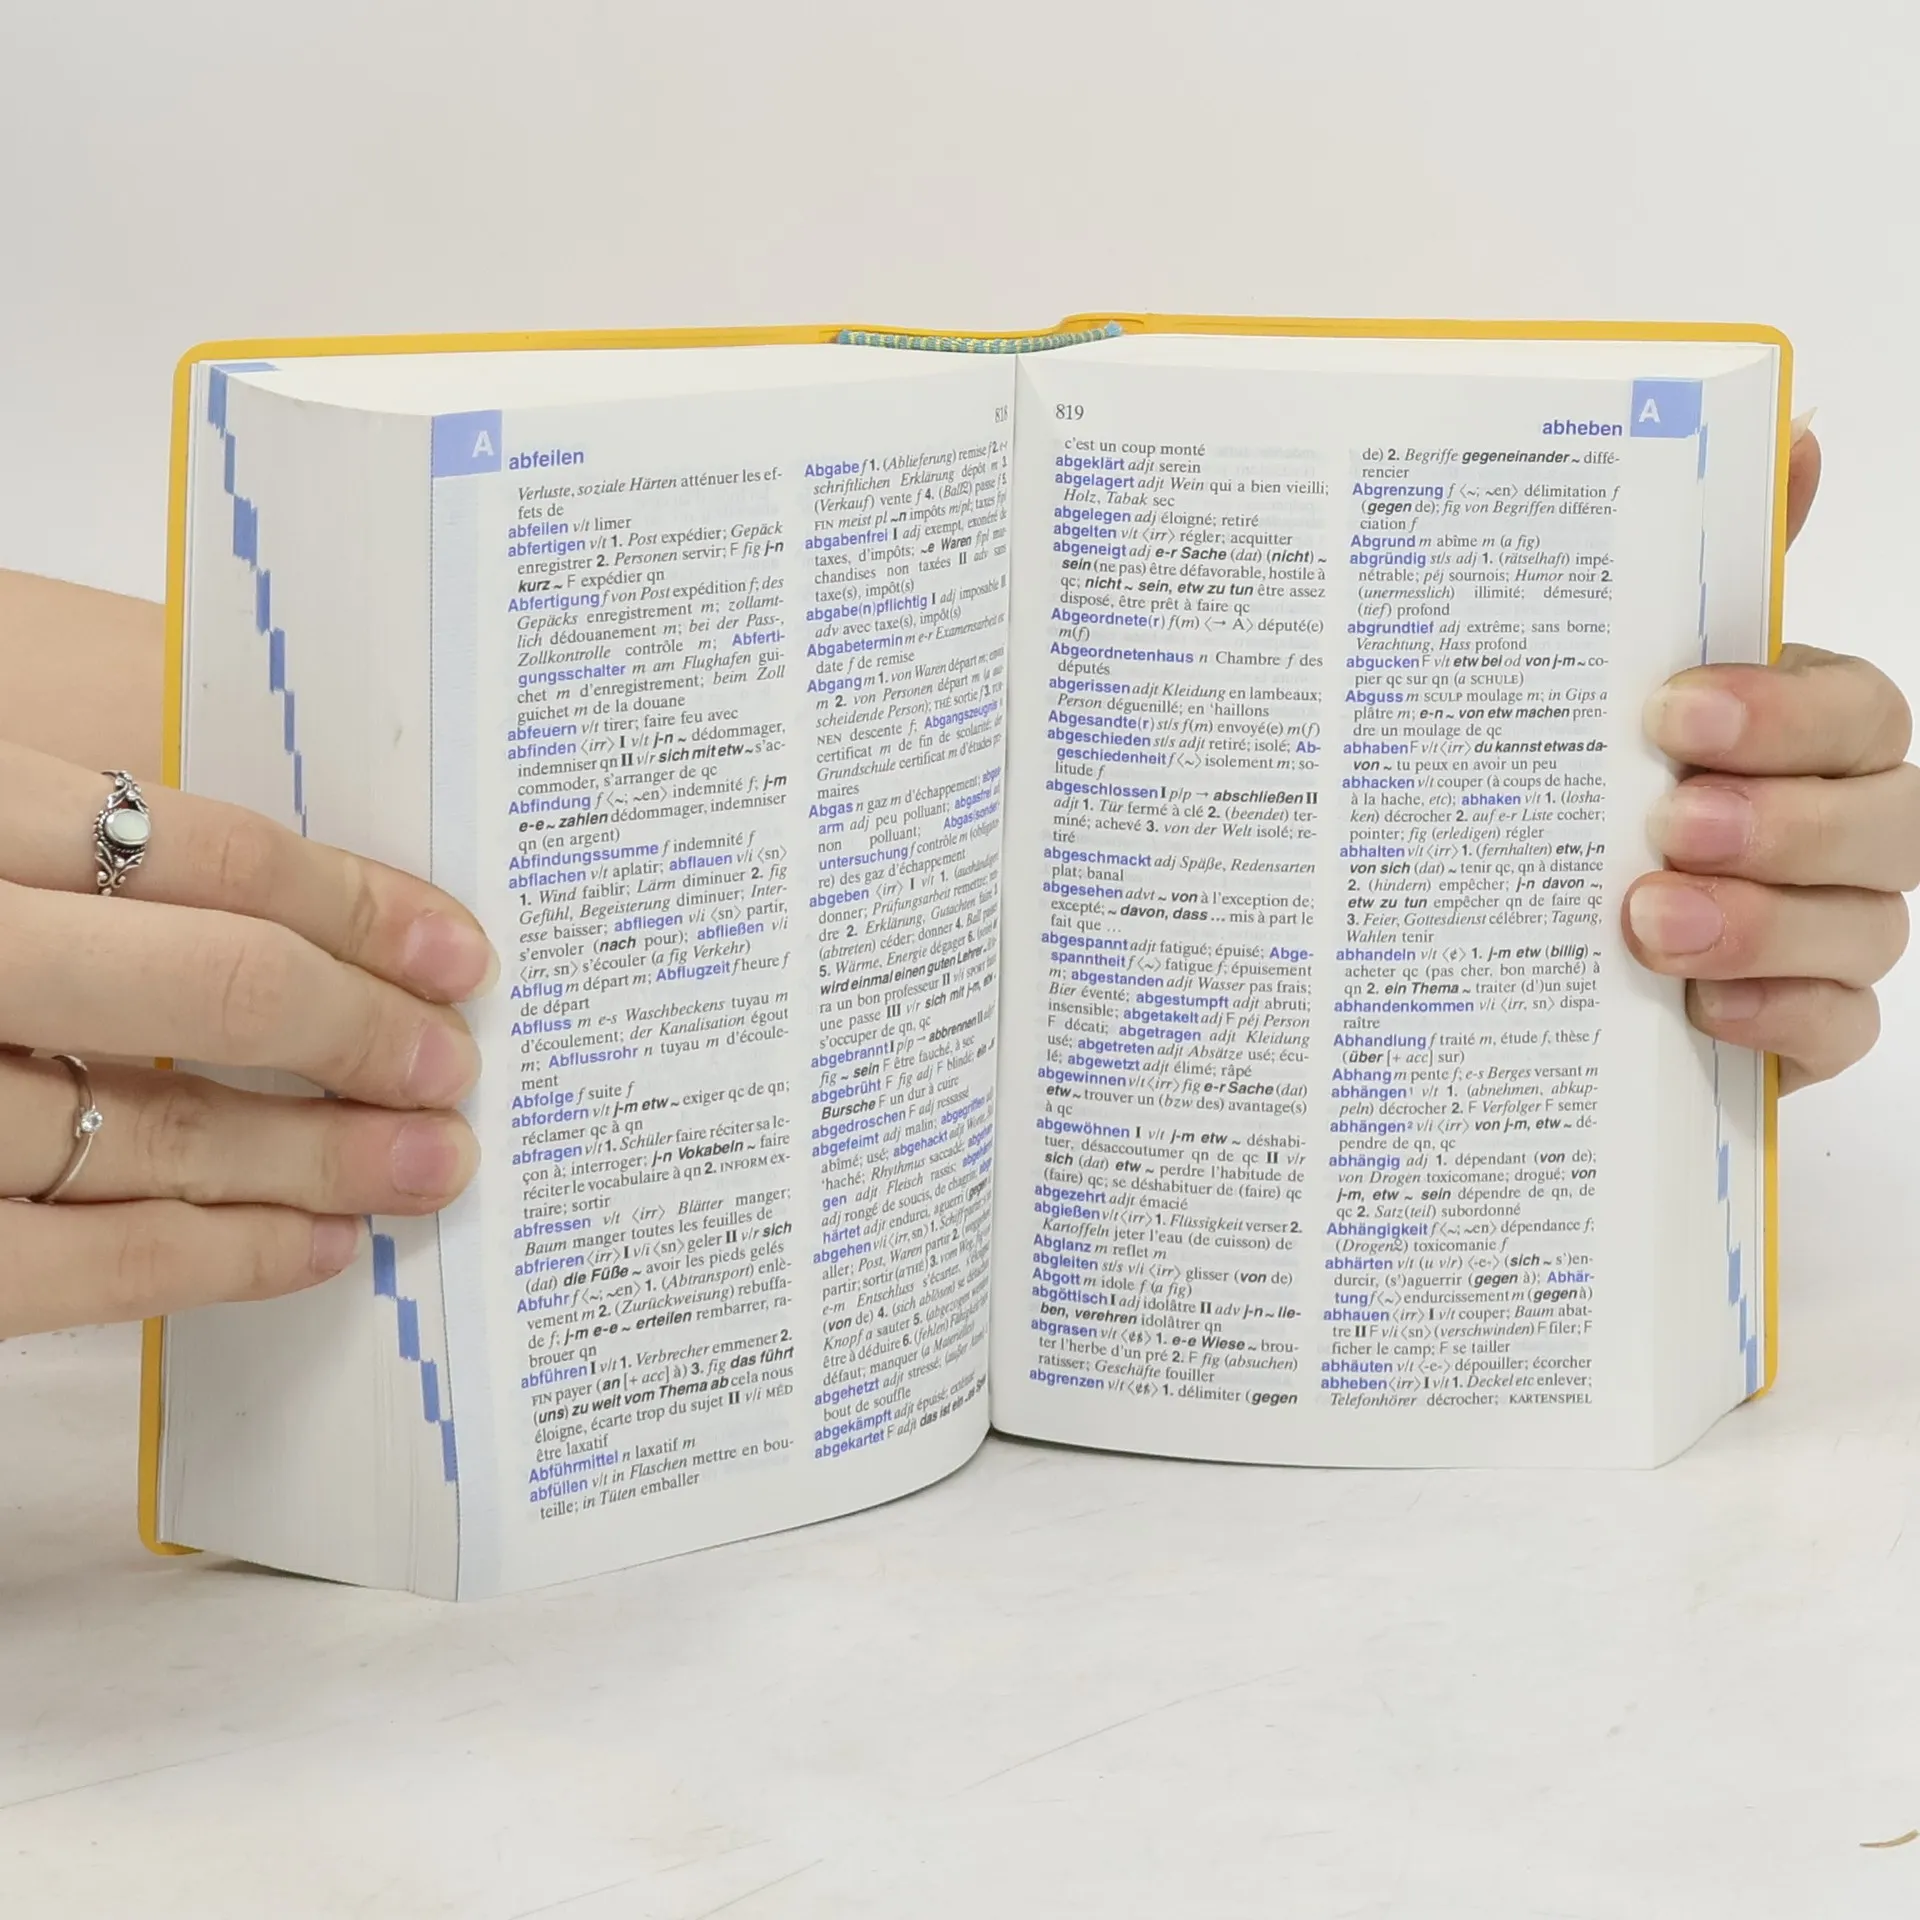 A
abfeilen
818
Verluste, soziale Härten atténuer les ef-
fets de
abfeilen v/t limer
abfertigen v/t 1. Post expédier; Gepäck
enregistrer 2. Personen servir; F fig j-n
kurz ~ F expédier qn
Abfertigung f von Post expédition f; des
Gepäcks enregistrement m; zollamt-
lich dédouanement m; bei der Pass-,
Zollkontrolle contrôle m; Abferti-
gungsschalter m am Flughafen gui-
chet m d'enregistrement; beim Zoll
guichet m de la douane
abfeuern v/t tirer; faire feu avec
abfinden ⟨irr⟩ I v/t j-n ~ dédommager,
indemniser qn II v/r sich mit etw ~ s'ac-
commoder, s'arranger de qc
Abfindung f ⟨~; ~en⟩ indemnité f; j-m
e-e ~ zahlen dédommager, indemniser
qn (en argent)
Abfindungssumme f indemnité f
abflachen v/t aplatir; abflauen v/i ⟨sn⟩
1. Wind faiblir; Lärm diminuer 2. fig
Gefühl, Begeisterung diminuer; Inter-
esse baisser; abfliegen v/i ⟨sn⟩ partir,
s'envoler (nach pour); abfließen v/i
⟨irr, sn⟩ s'écouler (a fig Verkehr)
Abflug m départ m; Abflugzeit f heure f
de départ
Abfluss m e-s Waschbeckens tuyau m
d'écoulement; der Kanalisation égout
m; Abflussrohr n tuyau m d'écoule-
ment
Abfolge f suite f
abfordern v/t j-m etw ~ exiger qc de qn;
réclamer qc à qn
abfragen v/t 1. Schüler faire réciter sa le-
çon à; interroger; j-n Vokabeln ~ faire
réciter le vocabulaire à qn 2. INFORM ex-
traire; sortir
abfressen v/t ⟨irr⟩ Blätter manger;
Baum manger toutes les feuilles de
abfrieren ⟨irr⟩ I v/i ⟨sn⟩ geler II v/r sich
(dat) die Füße ~ avoir les pieds gelés
Abfuhr f ⟨~; ~en⟩ 1. (Abtransport) enlè-
vement m 2. (Zurückweisung) rebuffa-
de f; j-m e-e ~ erteilen rembarrer, ra-
brouer qn
abführen I v/t 1. Verbrecher emmener 2.
FIN payer (an [+ acc] à) 3. fig das führt
(uns) zu weit vom Thema ab cela nous
éloigne, écarte trop du sujet II v/i MÉD
être laxatif
Abführmittel n laxatif m
abfüllen v/t in Flaschen mettre en bou-
teille; in Tüten emballer
Abgabe f 1. (Ablieferung) remise f 2.
schriftlichen Erklärung dépôt m 3.
(Verkauf) vente f 4. (Ball2) passe f 5.
FIN meist pl ~n impôts m/pl; taxes f/pl
abgabenfrei I adj exempt, exonéré de
taxes, d'impôts; ~e Waren f/pl mar-
chandises non taxées II adv sans
taxe(s), impôt(s)
abgabe(n)pflichtig I adj imposable II
adv avec taxe(s), impôt(s)
Abgabetermin m e-r Examensarbeit etc
date f de remise
Abgang m 1. von Waren départ m; envoi
m 2. von Personen départ m (a aus-
scheidende Person); THÉ sortie f 3. TUR-
NEN descente f; Abgangszeugnis n
certificat m de fin de scolarité; der
Grundschule certificat m d'études pri-
maires
Abgas n gaz m d'échappement; abgas-
arm adj peu polluant; abgasfrei adj
non polluant; Abgas(sonder)-
untersuchung f contrôle m (obligatoi-
re) des gaz d'échappement
abgeben ⟨irr⟩ I v/t 1. (aushändigen)
donner; Prüfungsarbeit remettre; ren-
dre 2. Erklärung, Gutachten faire 3.
(abtreten) céder; donner 4. Ball passer
5. Wärme, Energie dégager 6.
wird einmal einen guten Lehrer ~
ra un bon professeur II v/i SPORT faire
une passe III v/r sich mit j-m, etw ~
s'occuper de qn, qc
abgebrannt I p/p → abbrennen II adjt
fig ~ sein F être fauché, à sec
abgebrüht F fig adj F blindé; ein ~er
Bursche F un dur à cuire
abgedroschen F adj ressassé
abgefeimt adj malin; abgegriffen adjt
abîmé; usé; abgehackt adjt Worte, Stil
'haché; Rhythmus saccadé;
gen adjt Fleisch rassis;
adj rongé de soucis, de chagrin;
härtet adjt endurci, aguerri (gegen
abgehen v/i ⟨irr, sn⟩ 1. Schiff partir
aller; Post, Waren partir 2. (weggehen)
partir; sortir (a THÉ) 3. vom Weg,
e-m Entschluss s'écarter, s'éloigner
(von de) 4. (sich ablösen) se détacher;
Knopf a sauter 5. (abgezogen werden)
être à déduire 6. (fehlen)
défaut; manquer (a Materielles)
abgehetzt adjt stressé; (außer Atem) à
bout de souffle
abgekämpft adjt épuisé; exténué
abgekartet F adjt das ist ein ~es Spiel
819
abheben
A
c'est un coup monté
abgeklärt adjt serein
abgelagert adjt Wein qui a bien vieilli;
Holz, Tabak sec
abgelegen adj éloigné; retiré
abgelten v/t ⟨irr⟩ régler; acquitter
abgeneigt adj e-r Sache (dat) (nicht) ~
sein (ne pas) être défavorable, hostile à
qc; nicht ~ sein, etw zu tun être assez
disposé, être prêt à faire qc
Abgeordnete(r) f(m) ⟨→ A⟩ député(e)
m(f)
Abgeordnetenhaus n Chambre f des
députés
abgerissen adjt Kleidung en lambeaux;
Person déguenillé; en 'haillons
Abgesandte(r) st/s f(m) envoyé(e) m(f)
abgeschieden st/s adjt retiré; isolé; Ab-
geschiedenheit f ⟨~⟩ isolement m; so-
litude f
abgeschlossen I p/p → abschließen II
adjt 1. Tür fermé à clé 2. (beendet) ter-
miné; achevé 3. von der Welt isolé; re-
tiré
abgeschmackt adj Späße, Redensarten
plat; banal
abgesehen advt ~ von à l'exception de;
excepté; ~ davon, dass ... mis à part le
fait que ...
abgespannt adjt fatigué; épuisé; Abge-
spanntheit f ⟨~⟩ fatigue f; épuisement
m; abgestanden adjt Wasser pas frais;
Bier éventé; abgestumpft adjt abruti;
insensible; abgetakelt adj F péj Person
F décati; abgetragen adjt Kleidung
usé; abgetreten adjt Absätze usé; écu-
lé; abgewetzt adjt élimé; râpé
abgewinnen v/t ⟨irr⟩ fig e-r Sache (dat)
etw ~ trouver un (bzw des) avantage(s)
à qc
abgewöhnen I v/t j-m etw ~ déshabi-
tuer, désaccoutumer qn de qc II v/r
sich (dat) etw ~ perdre l'habitude de
(faire) qc; se déshabituer de (faire) qc
abgezehrt adjt émacié
abgießen v/t ⟨irr⟩ 1. Flüssigkeit verser 2.
Kartoffeln jeter l'eau (de cuisson) de
Abglanz m reflet m
abgleiten st/s v/i ⟨irr⟩ glisser (von de)
Abgott m idole f (a fig)
abgöttisch I adj idolâtre II adv j-n ~ lie-
ben, verehren idolâtrer qn
abgrasen v/t ⟨¢$⟩ 1. e-e Wiese ~ brou-
ter l'herbe d'un pré 2. F fig (absuchen)
ratisser; Geschäfte fouiller
abgrenzen v/t ⟨¢$⟩ 1. délimiter (gegen
de) 2. Begriffe gegeneinander ~ diffé-
rencier
Abgrenzung f ⟨~; ~en⟩ délimitation f
(gegen de); fig von Begriffen différen-
ciation f
Abgrund m abîme m (a fig)
abgründig st/s adj 1. (rätselhaft) impé-
nétrable; péj sournois; Humor noir 2.
(unermesslich) illimité; démesuré;
(tief) profond
abgrundtief adj extrême; sans borne;
Verachtung, Hass profond
abgucken F v/t etw bei od von j-m ~ co-
pier qc sur qn (a SCHULE)
Abguss m SCULP moulage m; in Gips a
plâtre m; e-n ~ von etw machen pren-
dre un moulage de qc
abhaben F v/t ⟨irr⟩ du kannst etwas da-
von ~ tu peux en avoir un peu
abhacken v/t couper (à coups de hache,
à la hache, etc); abhaken v/t 1. (losha-
ken) décrocher 2. auf e-r Liste cocher;
pointer; fig (erledigen) régler
abhalten v/t ⟨irr⟩ 1. (fernhalten) etw, j-n
von sich (dat) ~ tenir qc, qn à distance
2. (hindern) empêcher; j-n davon ~,
etw zu tun empêcher qn de faire qc
3. Feier, Gottesdienst célébrer; Tagung,
Wahlen tenir
abhandeln v/t ⟨¢⟩ 1. j-m etw (billig) ~
acheter qc (pas cher, bon marché) à
qn 2. ein Thema ~ traiter (d')un sujet
abhandenkommen v/i ⟨irr, sn⟩ dispa-
raître
Abhandlung f traité m, étude f, thèse f
(über [+ acc] sur)
Abhang m pente f; e-s Berges versant m
abhängen¹ v/t 1. (abnehmen, abkup-
peln) décrocher 2. F Verfolger F semer
abhängen² v/i ⟨irr⟩ von j-m, etw ~ dé-
pendre de qn, qc
abhängig adj 1. dépendant (von de);
von Drogen toxicomane; drogué; von
j-m, etw ~ sein dépendre de qn, de
qc 2. Satz(teil) subordonné
Abhängigkeit f ⟨~; ~en⟩ dépendance f;
(Drogen2) toxicomanie f
abhärten v/t (u v/r) ⟨-e-⟩ (sich ~ s')en-
durcir, (s')aguerrir (gegen à); Abhär-
tung f ⟨~⟩ endurcissement m (gegen à)
abhauen ⟨irr⟩ I v/t couper; Baum abat-
tre II F v/i ⟨sn⟩ (verschwinden) F filer; F
ficher le camp; F se tailler
abhäuten v/t ⟨-e-⟩ dépouiller; écorcher
abheben ⟨irr⟩ I v/t 1. Deckel etc enlever;
Telefonhörer décrocher; KARTENSPIEL